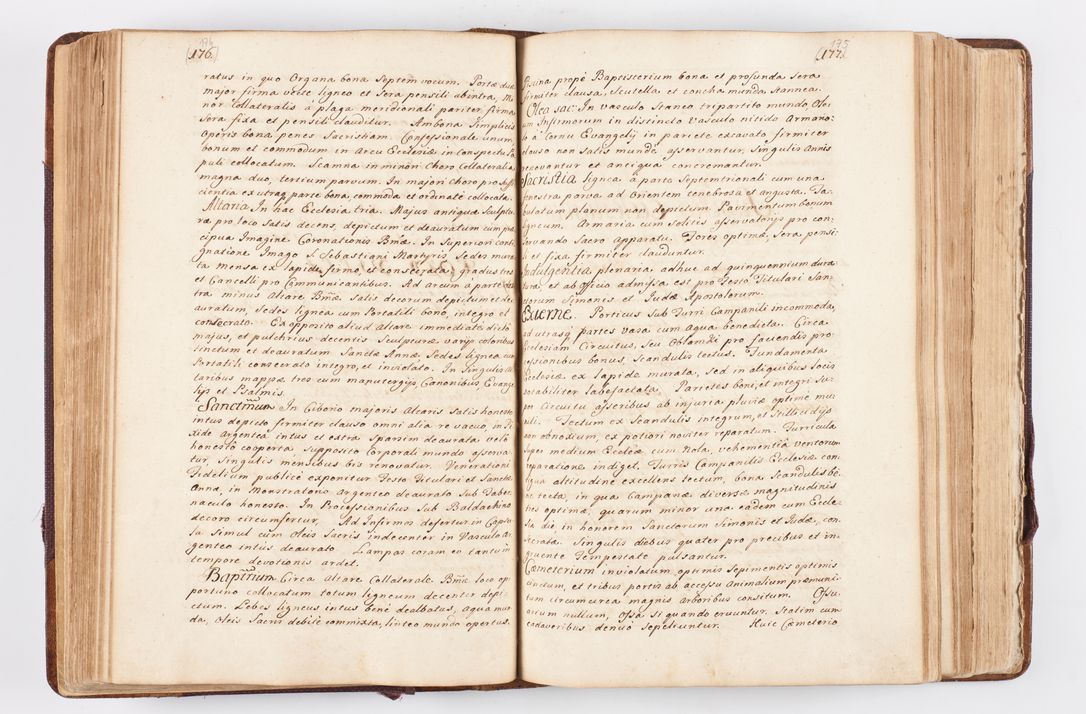 174
176.
ratus in quo Organa bona Septem vocum. Portæ duæ
major firma vecte ligneo et Sera pensili abintra, Mi
nor Collateralis à plaga meridionali pariter firma
Sera fixa et pensili clauditur. Ambona Simplicis
Operis bona penes Sacristiam. Confessionale unum
bonum et commodum in Arcu Ecclesiæ in conspectu Po
puli collocatum. Scamna in minori Choro Collateralia
magna duo, tertium parvum. In majori choro pro Suffi
cientia ex utraq parte bona, commoda et ordinatè collocata.
Altaria In hac Ecclesia tria. Majus antiquæ Sculptu
ræ pro loco Satis decens, depictum et deauratum cum præ
cipua Imagine Coronationis Bmæ. In Superiori conti
gnatione Imago S. Sebastiani Martyris. Sedes mura
ta Mensa ex lapide firmo, et consecrata, gradus tres
et Cancelli pro Communicantibus. Ad arcum à parte dex
tra minus Altare Bmæ Satis decorum depictum et de
auratum, Sedes lignea cum Portatili bono, integro et
consecrato. Ex opposito aliud Altare immediatè dicto
majus, et pulchrius decentis Sculpturæ varijs coloribus
tinctum et deauratum Sanctæ Annæ, Sedes lignea cum
Portatili consecrato integro, et inviolato. In Singulis Al
taribus mappæ tres cum manutergijs, Canonibus Evange
lijs et Psalmis.
Sanctmum In Ciborio majoris Altaris Satis honesto
intus depicto firmiter clauso omni alia re vacuo, in Pi
xide Argentea intus et extra Sparsim deaurata velo
honesto cooperta Supposito Corporali mundo asserva
tur, Singulis mensibus bis renovatur. Venerationi
Fidelium publicè exponitur Festo Titulari et Sanctæ
Annæ, in Monstratorio Argenteo deaurato Sub Taber
naculo honesto. In Processionibus Sub Baldachino
decoro circumfertur. Ad Infirmos defertur in Capsu
la Simul cum Oleis Sacris indecenter in Vasculo ar
genteo intus deaurato. Lampas coram eo tantum
tempore devotionis ardet.
Baptmum Circa altare Collaterale Bmæ loco op
portuno collocatum totum ligneum decenter depi
ctum. Lebes ligneus intus benè dealbatus, aqua mun
da, Oleis Sacris debitè commixta, linteo mundo opertus.
175
177.
Piscina propè Baptisterium bona et profunda Sera
firmiter clausa, Scutella et concha munda Stannea.
Olea sac: In vasculo Staneo tripartito mundo, Ole:
um Infirmorum in distincto vasculo nitido Armario:
lo à Cornu Evangelij in pariete excavato firmiter
clauso non satis mundè asservantur, Singulis Annis
renovantur et antiqua concremantur.
Sacristia lignea à parte Septemtrionali cum una
fenestra parva ad Orientem tenebrosa et angusta. Ta:
bulatum planum non depictum. Pavimentum bonum
ligneum. Armaria cum Solitis asservatorijs pro con:
servando Sacro apparatu. Fores optimæ, Sera pensi:
li et fixa firmiter clauduntur.
Indulgentia plenaria adhuc ad quinquennium dura
tura, et ab Officio admissa est pro Festo Titulari San:
ctorum Simonis et Judæ Apostolorum.
Externè. Porticus Sub Turri Campanili incommoda,
ad utrasq partes vasa cum aqua benedicta. Circa
Ecclesiam Circuitus, Seu Oblamki pro faciendis pro:
cessionibus bonus, Scandulis tectus. Fundamenta
Ecclesiæ ex lapide murata, sed in aliquibus locis
notabiliter labefactata. Parietes boni, et integri Su:
per Circuitu asseribus ab injuria pluviæ optimè mu:
niti. Tectum ex Scandulis integrum, et Stillicidijs
non obnoxium, ex potiori noviter reparatum. Turricula
Super medium Ecclesiæ cum Nola, vehementia ventorum
reparatione indiget. Turris Campanilis Ecclesiæ con:
tigua altitudine excellens tectum, bona Scandulis be:
nè tecta, in qua Campanæ diversæ magnitudinis
tres optimæ, quarum minor una eadem cum Eccle:
sia die in honorem Sanctorum Simonis et Judæ, con:
secrata. Singulis diebus quater pro precibus et in:
gruente Tempestate pulsantur.
Cæmeterium inviolatum optimis Sepimentis optimis
cinctum, et tribus portis ab accessu Animalium præmuni:
tum circumcirca magnis arboribus consitum. Ossu:
arium nullum, Ossa si quando eruuntur, Statim cum
cadaveribus denuo Sepeliuntur. Huic Cæmeterio